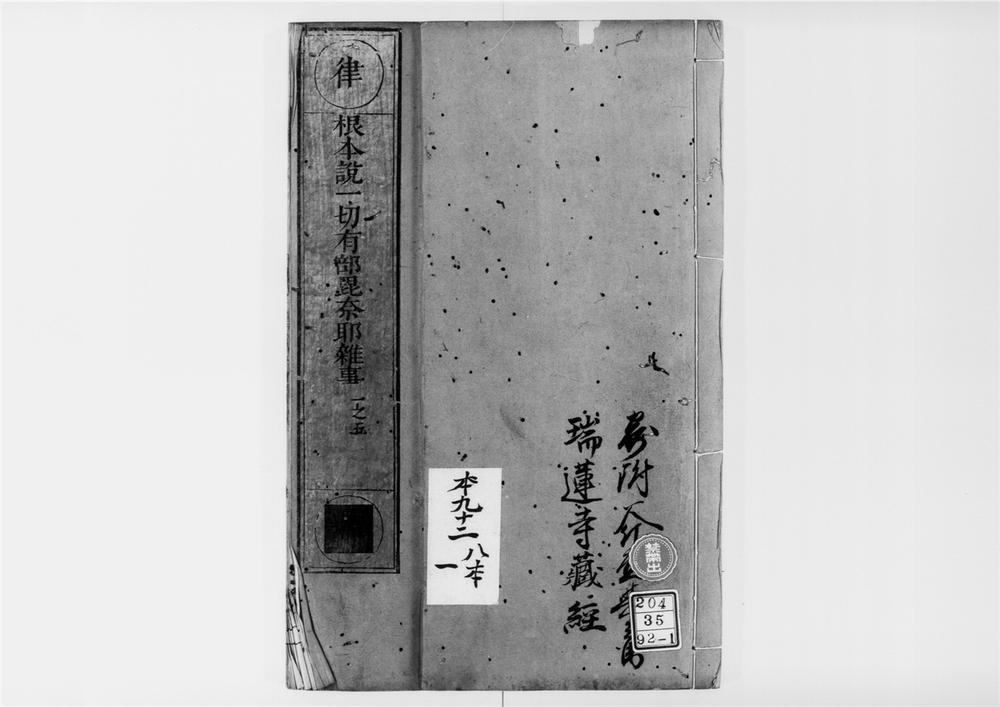 律
根本說一切有部毘奈耶雜事
一之五
瑞蓮寺藏經
本九十二
八本
一
禁帶出
204
35
92-1